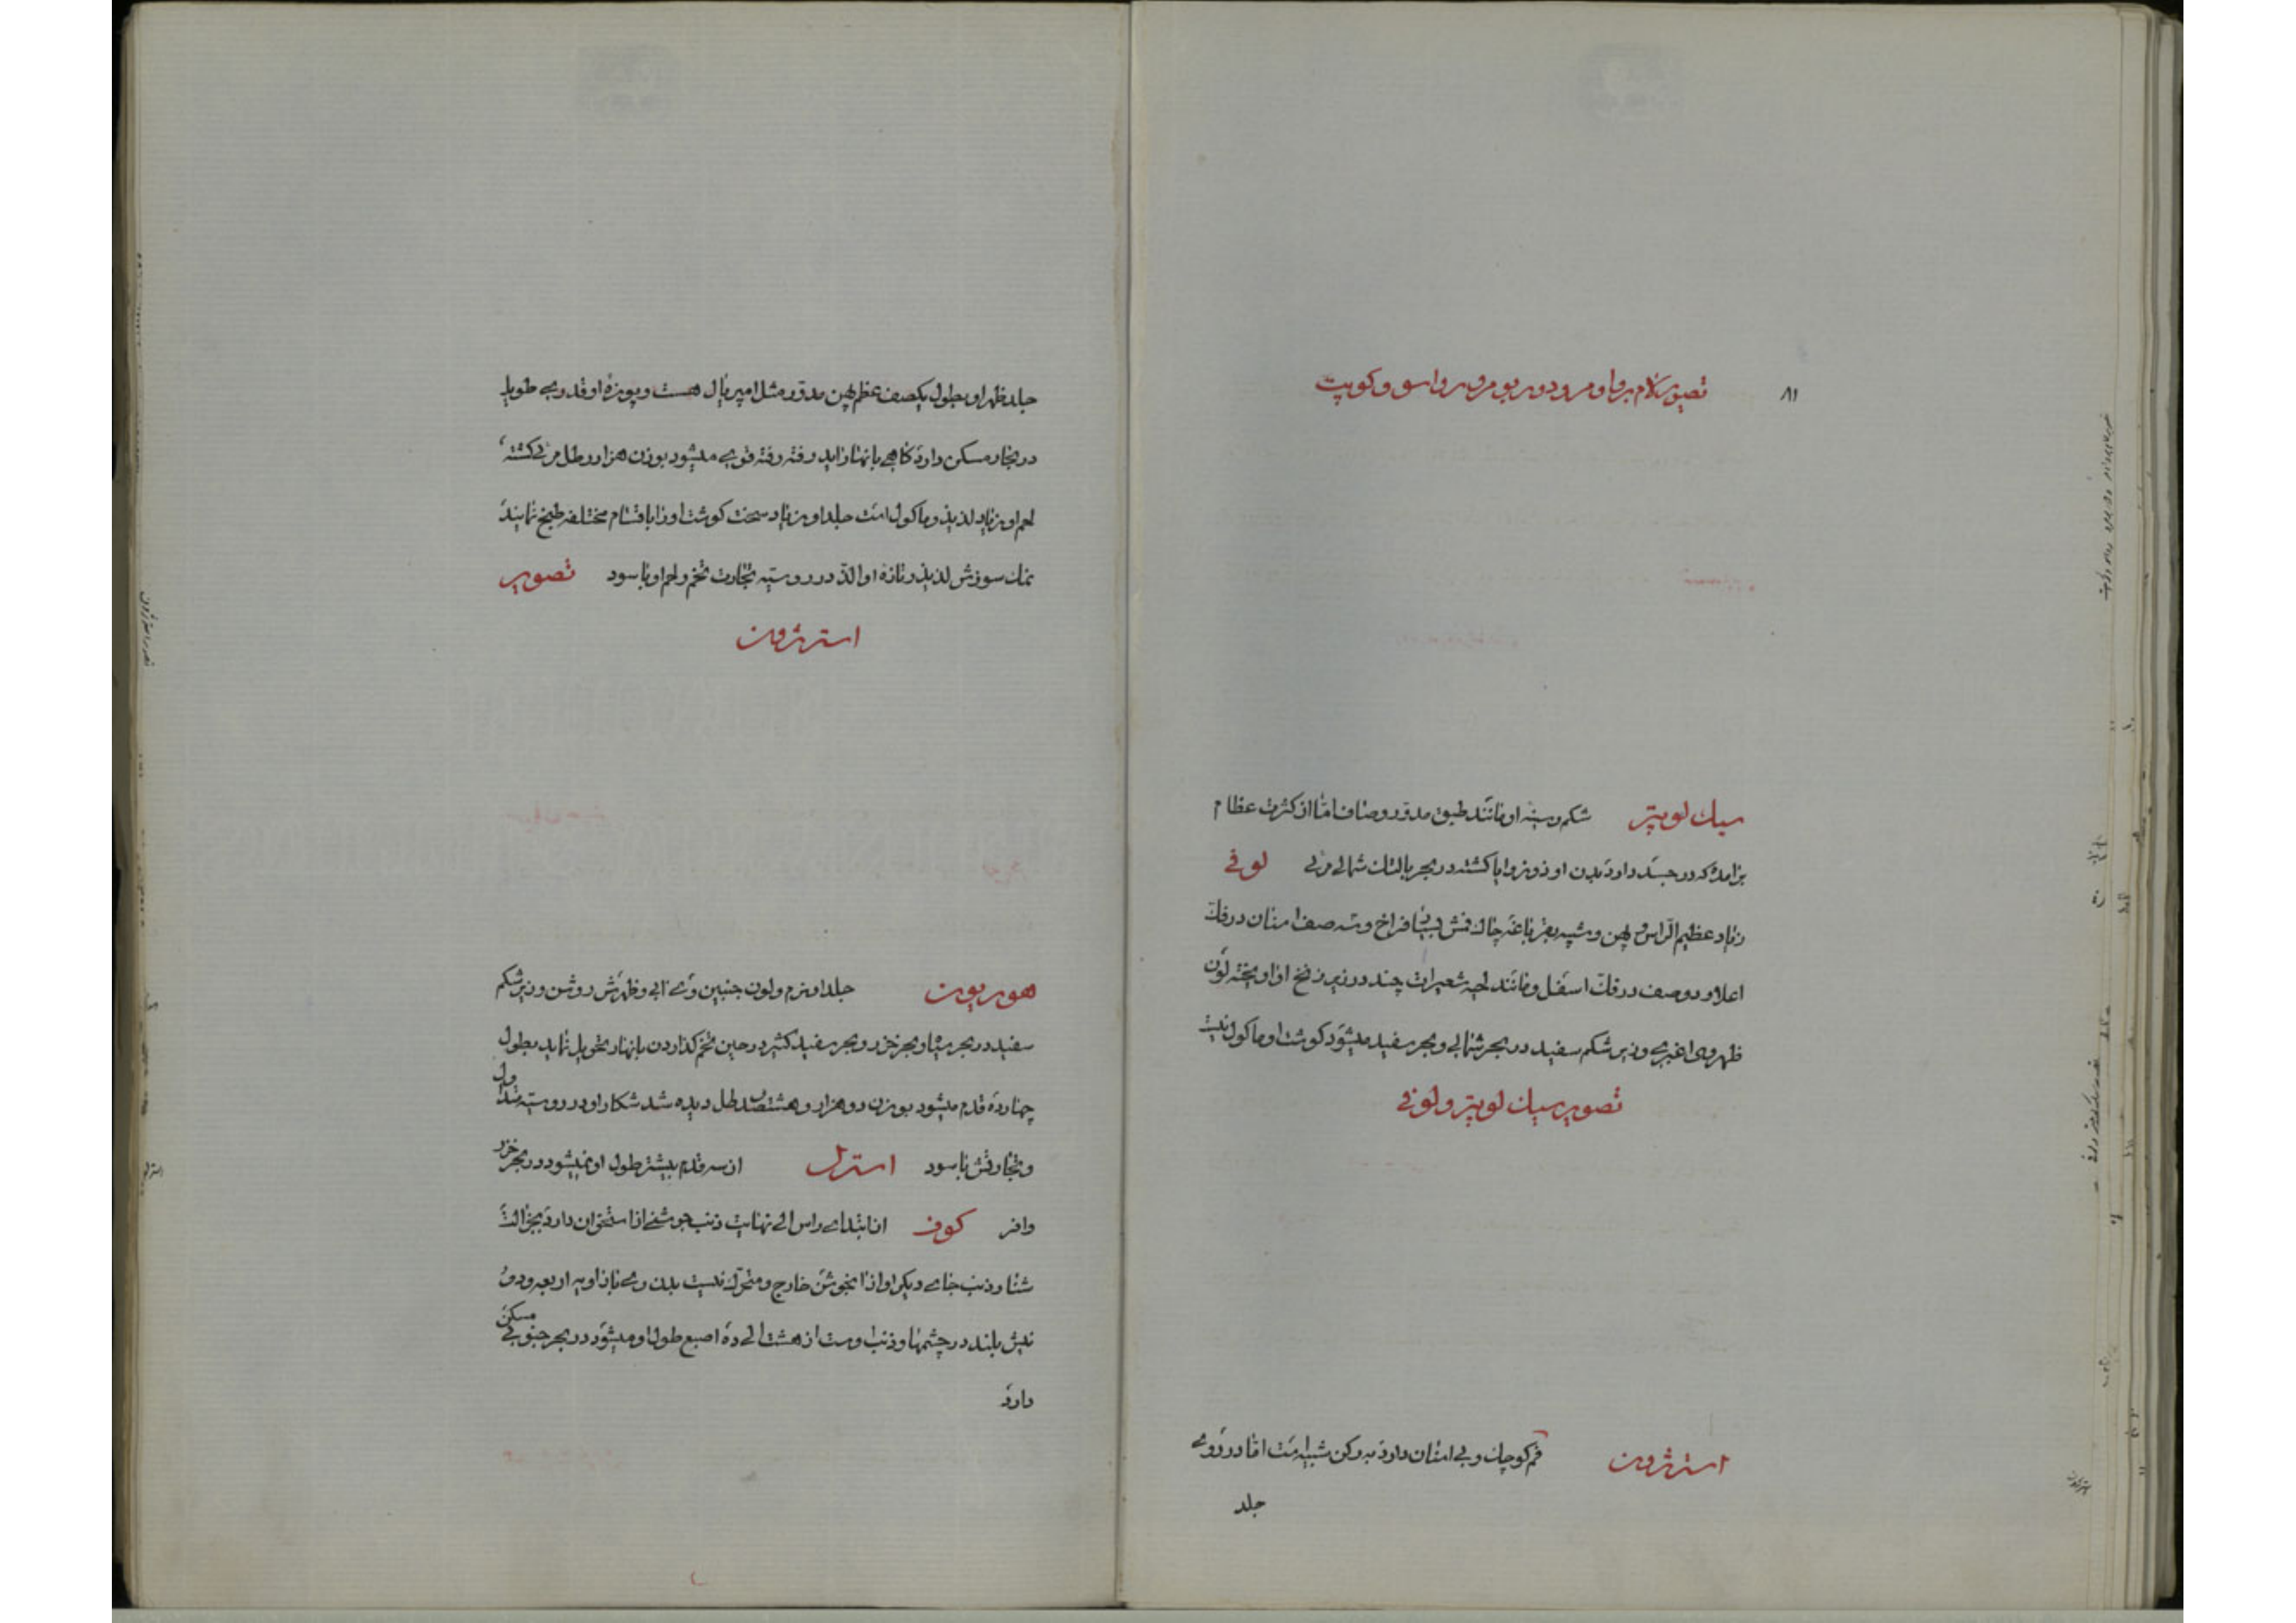 ۸۱
تصویر
سیك لوپتر شکم و سینه او مانند طبق مدور و صاف اما از کثرت عظام
برامده که در جسد دارد بدن او ذو زوایا کشته در بحر بالتك شمالی مرئی لوفی
زیاد عظیم الراس و پهن و شبیه فراخ و سه صف اسنان در فك
اعلا و دو صف در فك اسفل و مانند لحیه شعیرات چند در زیر زنخ او اویخته لون
ظهر وی اغبری و زیر شکم سفید در بحر شمالی و بحر سفید میشود کوشت او ماکول نیست
تصویر سیك لوپتر و لوفی
استرژون فم کوچك و بی اسنان دارد شبیه است اما در روی
جلد
جلد ظهر او بطول یکصف عظم پهن مدور مثل امپریال هست و پوزه او قدری طویل
در بحار مسکن دارد کاهی بانهار اید رفته رفته قوی میشود بوزن هزار رطل مرئی کشته
لحم او زیاد لذیذ و ماکول است جلد او زیاد سخت کوشت او را باقسام مختلفه طبخ نمایند
نمك سوزش لذیذ و تازه او الذ در روسیه تجارت تخم و لحم او با سود تصویر
استرژون
هوزیون جلد او نرم و لون جنبین وی ابی و ظهرش روشن و زیر شکم
سفید در بحر سیاه و بحر خزر و بحر سفید کثیر در حین تخم کذاردن بانهار تحویل نماید بطول
چهارده قدم میشود بوزن دو هزار و هشتصد رطل دیده شد شکار او در روسیه متداول
و تجارتش با سود استرل از سه قدم بیشتر طول او نمیشود در بحر خزر
وافر کوف از ابتدای راس الی نهایت ذنب جوشنی از استخوان دارد بجز الت
شنا و ذنب جای دیکر او از جوشن خارج و متحرك نیست بدن وی با زاویه اربعه و دو
نیش بلند در چشمها و ذنب اوست از هشت الی ده اصبع طول او میشود در بحر جنوبی مسکن
دارد